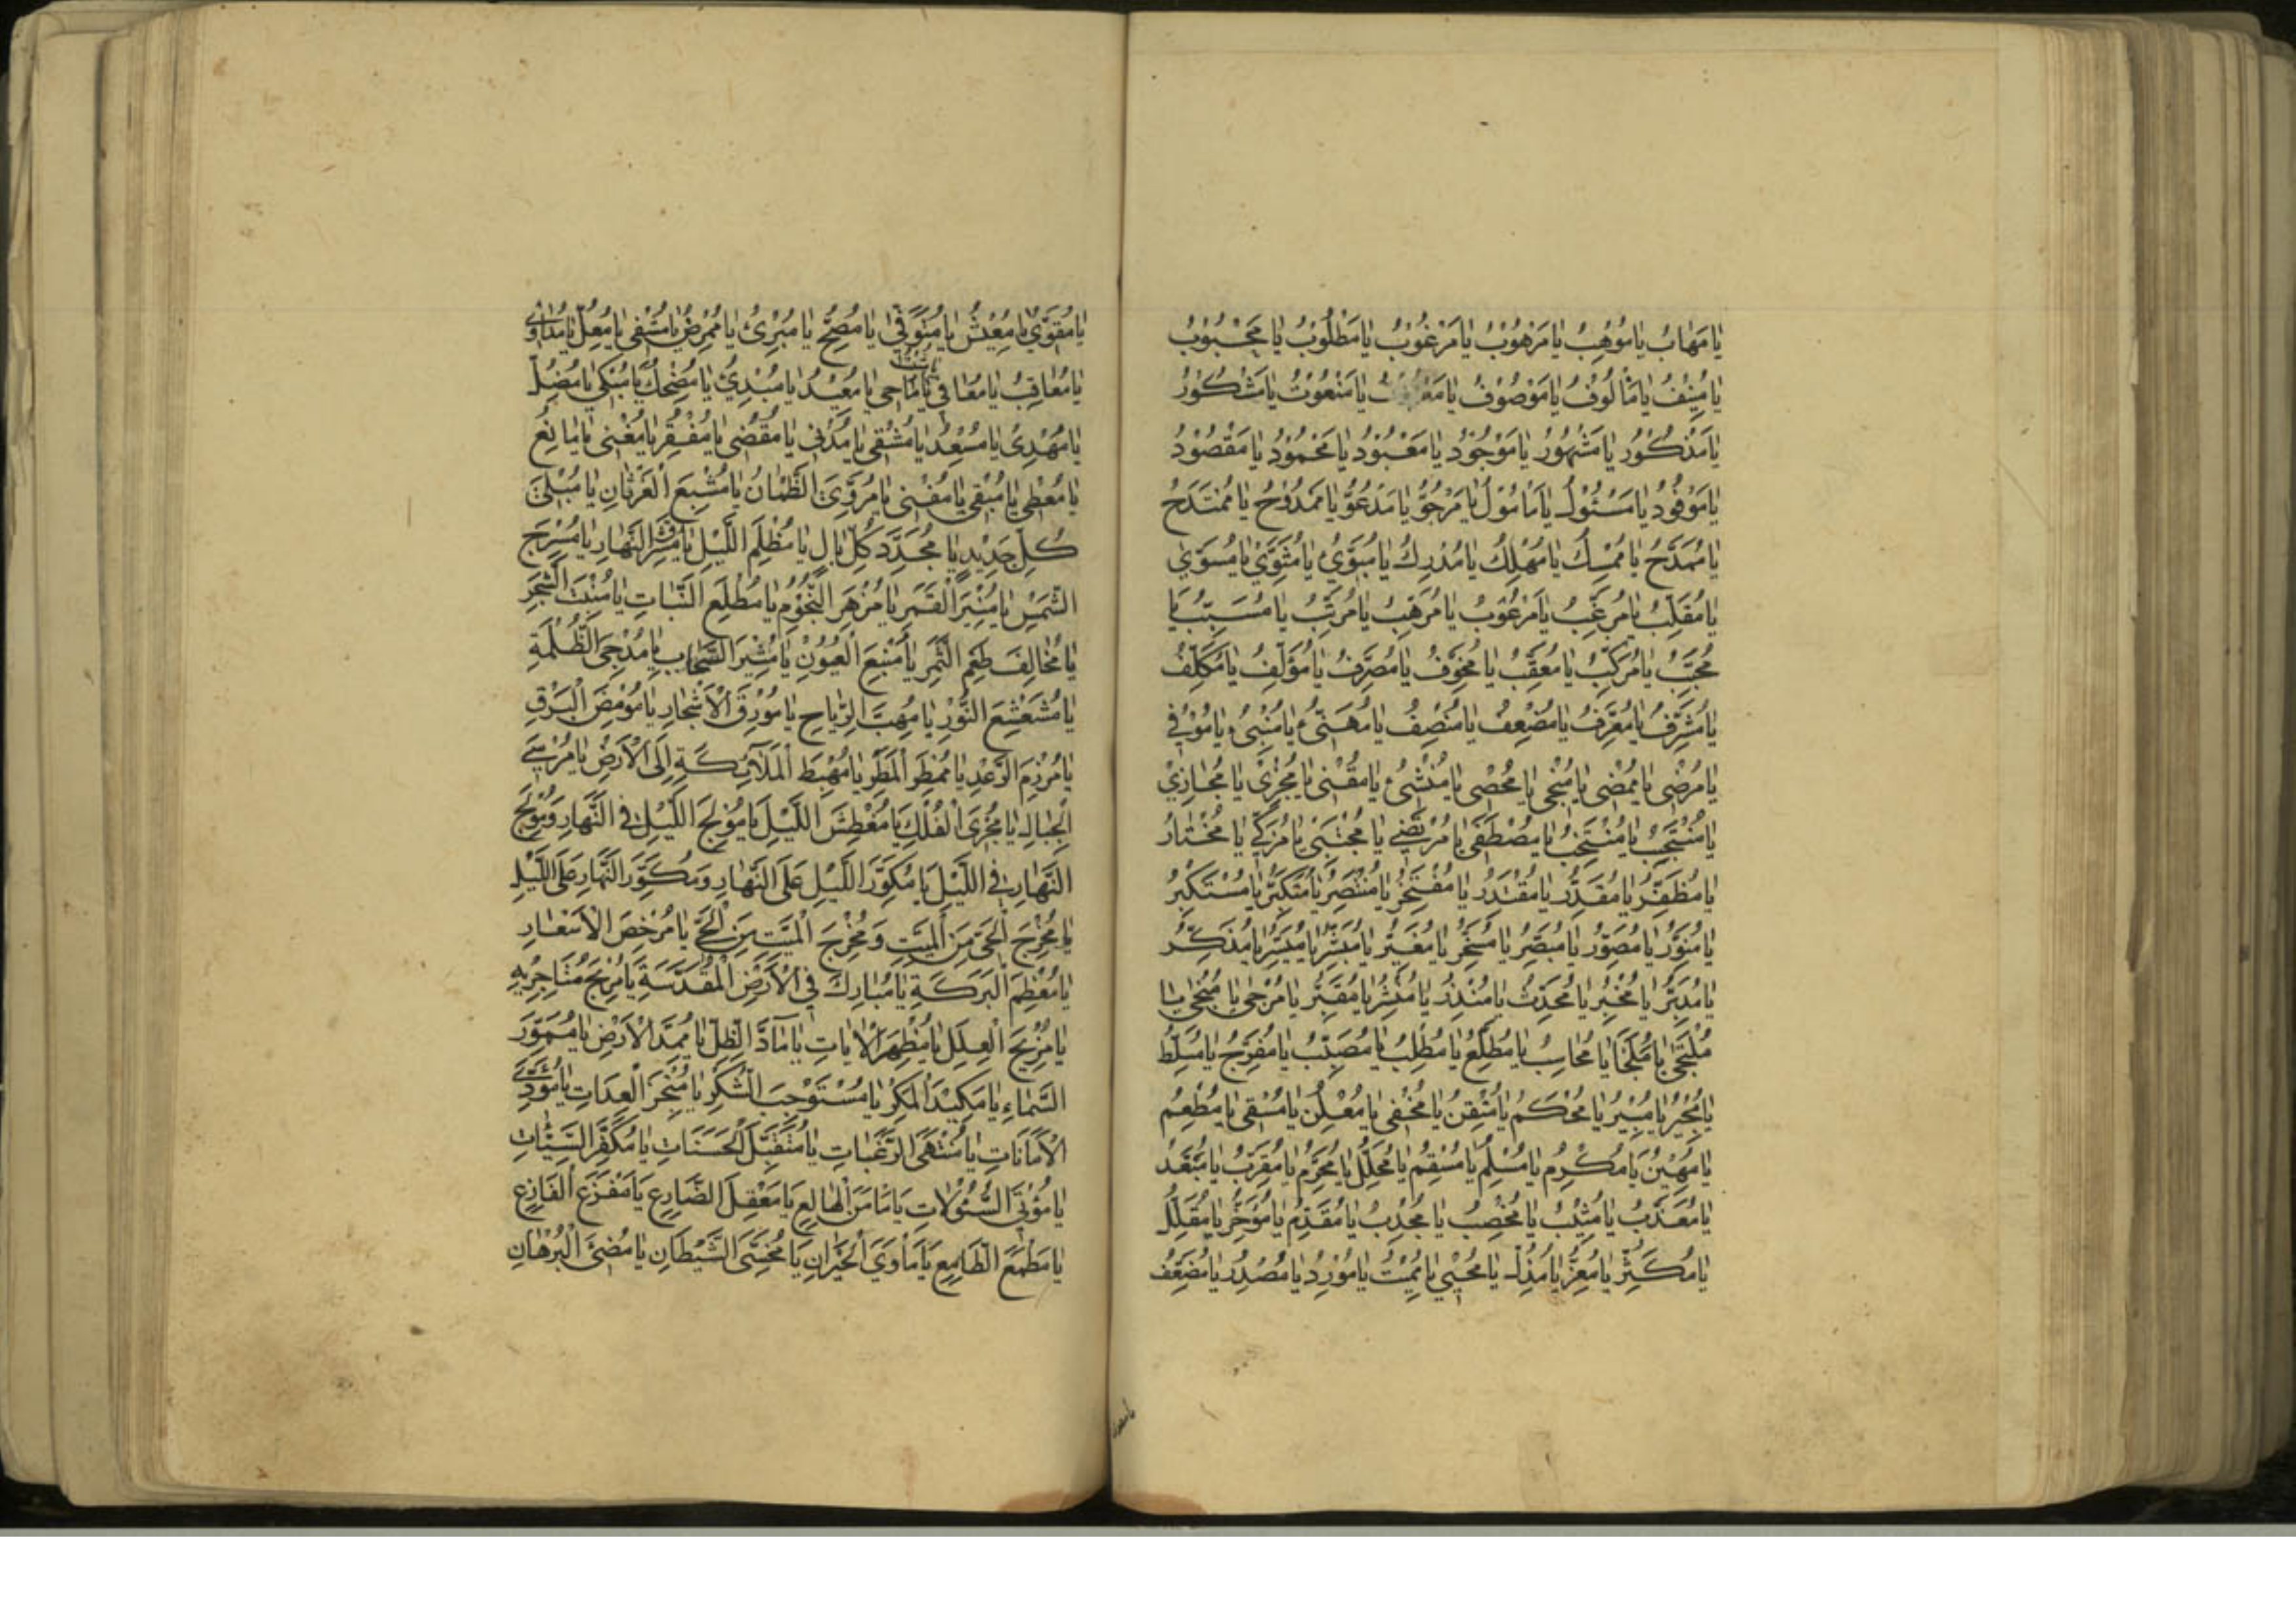 يَا مَهَابُ يَا مُوْهِبُ يَا مَرْهُوْبُ يَا مَرْغُوْبُ يَا مَطْلُوْبُ يَا مَحْبُوْبُ
يَا مُنِيْفُ يَا مَأْلُوْفُ يَا مَوْصُوْفُ يَا يَا مَنْعُوْتُ يَا مَشْكُوْرُ
يَا مَذْكُوْرُ يَا مَشْهُوْرُ يَا مَوْجُوْدُ يَا مَعْبُوْدُ يَا مَحْمُوْدُ يَا مَقْصُوْدُ
يَا مَوْفُوْدُ يَا مَسْئُوْلُ يَا مَأْمُوْلُ يَا مَرْجُوُّ يَا مَدْعُوُّ يَا مَمْدُوْحُ يَا مُمْتَدَحُ
يَا مُمَدَّحُ يَا مُمْسِكُ يَا مُهْلِكُ يَا مُدْرِكُ يَا مُبَوِّئُ يَا مُثَوِّيْ يَا مُسَوِّيْ
يَا مُقَلِّبُ يَا مُرَغِّبُ يَا مَرْعُوْبُ يَا مُرَهِّبُ يَا مُرَتِّبُ يَا مُسَبِّبُ يَا
مُحَبِّبُ يَا مُرَكِّبُ يَا مُعَقِّبُ يَا مُخَوِّفُ يَا مُصَرِّفُ يَا مُؤَلِّفُ يَا مُكَلِّفُ
يَا مُشَرِّفُ يَا مُعَرِّفُ يَا مُضْعِفُ يَا مُنْصِفُ يَا مُهَنِّئُ يَا مُنْبِئُ يَا مُوْفِيْ
يَا مُرْضِى يَا مُمْضِى يَا مُنْجِى يَا مُحْصِى يَا مُنْشِئُ يَا مُقْنِى يَا مُجْزِيْ يَا مُجَازِيْ
يَا مُنْتَجِبُ يَا مُنْتَخِبُ يَا مُصْطَفِى يَا مُرْتَضِي يَا مُجْتَبِى يَا مُزَكِّي يَا مُخْتَارُ
يَا مُظَفِّرُ يَا مُقَدِّرُ يَا مُقْتَدِرُ يَا مُفْتَخِرُ يَا مُنْتَصِرُ يَا مُتَكَبِّرُ يَا مُسْتَكْبِرُ
يَا مُنَوِّرُ يَا مُصَوِّرُ يَا مُبَصِّرُ يَا مُسَخِّرُ يَا مُغَيِّرُ يَا مُبَشِّرُ يَا مُيَسِّرُ يَا مُذَكِّرُ
يَا مُدَبِّرُ يَا مُخْبِرُ يَا مُحَدِّثُ يَا مُنْذِرُ يَا مُنْشِرُ يَا مُقْبِرُ يَا مُرْجِى يَا مُنْجِى يَا
مُلْتَجَى يَا مَلْجَأُ يَا مُحَاسِبُ يَا مُطَّلِعُ يَا مُطْلِبُ يَا يَا مُفَرِّجُ يَا مُسَلِّطُ
يَا مُجِيْرُ يَا مُبِيْرُ يَا مُحْكِمُ يَا مُتْقِنُ يَا مُخْفِى يَا مُعْلِنُ يَا مُسْقِى يَا مُطْعِمُ
يَا مُهِيْنُ يَا مُكْرِمُ يَا مُسْلِمُ يَا يَا مُحَلِّلُ يَا مُحَرِّمُ يَا مُقَرِّبُ يَا مُبَعِّدُ
يَا مُعَذِّبُ يَا مُثِيْبُ يَا مُخْصِبُ يَا مُجْدِبُ يَا مُقَدِّمُ يَا مُؤَخِّرُ يَا مُقَلِّلُ
يَا مُكَثِّرُ يَا مُعِزُّ يَا مُذِلُّ يَا مُحْيِي يَا مُمِيْتُ يَا مُوْرِدُ يَا مُصْدِرُ يَا مُضَعِّفُ
يَا مُقَوِّيْ يَا مُعِيْشُ يَا مُتَوَفِّيْ يَا مُصِحُّ يَا مُبْرِئُ يَا مُمْرِضُ يَا مُشْفِى يَا مُعِلُّ يَا مُدَاوِيْ
يَا مُعَاقِبُ يَا مُعَافِيْ يَا مَاحِى يَا مُعِيْدُ يَا مُبْدِئُ يَا مُضْحِكُ يَا مُبْكِى يَا مُضِلُّ
يَا مُهْدِيْ يَا مُسْعِدُ يَا مُشْقِى يَا مُدْنِى يَا مُقْصِى يَا مُفْقِرُ يَا مُغْنِى يَا مَانِعُ
يَا مُعْطِى يَا مُبْقِى يَا مُفْنِى يَا مُرَوِّيَ الظَّمْاٰنِ يَا مُشْبِعَ الْغَرْثَانِ يَا مُبْلِيَ
كُلِّ جَدِيْدٍ يَا مُجَدِّدَ كُلِّ بَالٍ يَا مُظْلِمَ اللَّيْلِ يَا مُشْرِقَ النَّهَارِ يَا مُسْرِجَ
الشَّمْسِ يَا مُنِيْرَ الْقَمَرِ يَا مُزْهِرَ النُّجُوْمِ يَا مُطْلِعَ النَّبَاتِ يَا مُنْبِتَ الشَّجَرِ
يَا مُخَالِفَ طَعْمِ الثَّمَرِ يَا مُنْبِعَ الْعُيُوْنِ يَا مُثِيْرَ السَّحَابِ يَا مُدْجِىَ الظُّلْمَةِ
يَا مُشَعْشِعَ النُّوْرِ يَا مُهِبَّ الرِّيَاحِ يَا مُوْرِقَ الْاَشْجَارِ يَا مُوْمِضَ الْبَرْقِ
يَا مُرْزِمَ الرَّعْدِ يَا مُمْطِرَ الْمَطَرِ يَا مُهْبِطَ الْمَلَآئِكَةِ اِلَى الْاَرْضِ يَا مُرْسِيَ
الْجِبَالِ يَا مُجْرِىَ الْفُلْكِ يَا مُغْطِشَ اللَّيْلِ يَا مُوْلِجَ اللَّيْلِ فِى النَّهَارِ وَمُوْلِجَ
النَّهَارِ فِى اللَّيْلِ يَا مُكَوِّرَ اللَّيْلِ عَلَى النَّهَارِ وَمُكَوِّرَ النَّهَارِ عَلَى اللَّيْلِ
يَا مُخْرِجَ الْحَىِّ مِنَ الْمَيِّتِ وَمُخْرِجَ الْمَيِّتِ مِنَ الْحَىِّ يَا مُرْخِصَ الْاَسْعَارِ
يَا مُعْظِمَ الْبَرَكَةِ يَا مُبَارِكَ فِى الْاَرْضِ الْمُقَدَّسَةِ يَا مُرْبِحَ مُتَاجِرِيْهِ
يَا مُزِيْحَ الْعِلَلِ يَا مُظْهِرَ الْاٰيَاتِ يَا مَآدَّ الظِّلِّ يَا مُمِدَّ الْاَرْضِ يَا
السَّمَاءِ يَا مَكِيْدَ الْمَكْرِ يَا مُسْتَوْجِبَ الشُّكْرِ يَا مُنْجِزَ الْعِدَاتِ يَا مُؤَدِّيَ
الْاَمَانَاتِ يَا مُنْتَهَى الرَّغَبَاتِ يَا مُتَقَبِّلَ الْحَسَنَاتِ يَا مُكَفِّرَ السَّيِّئَاتِ
يَا مُؤْتِيَ السُّؤُلَاتِ يَا مَأْمَنَ الْهَالِعِ يَا مَعْقِلَ الضَّارِعِ يَا مَفْزَعَ الْفَازِعِ
يَا مَطْمَعَ الطَّامِعِ يَا مَأْوَيَ الْحَيْرَانِ يَا مُخْسِئَ الشَّيْطَانِ يَا مُضِئَ الْبُرْهَانِ